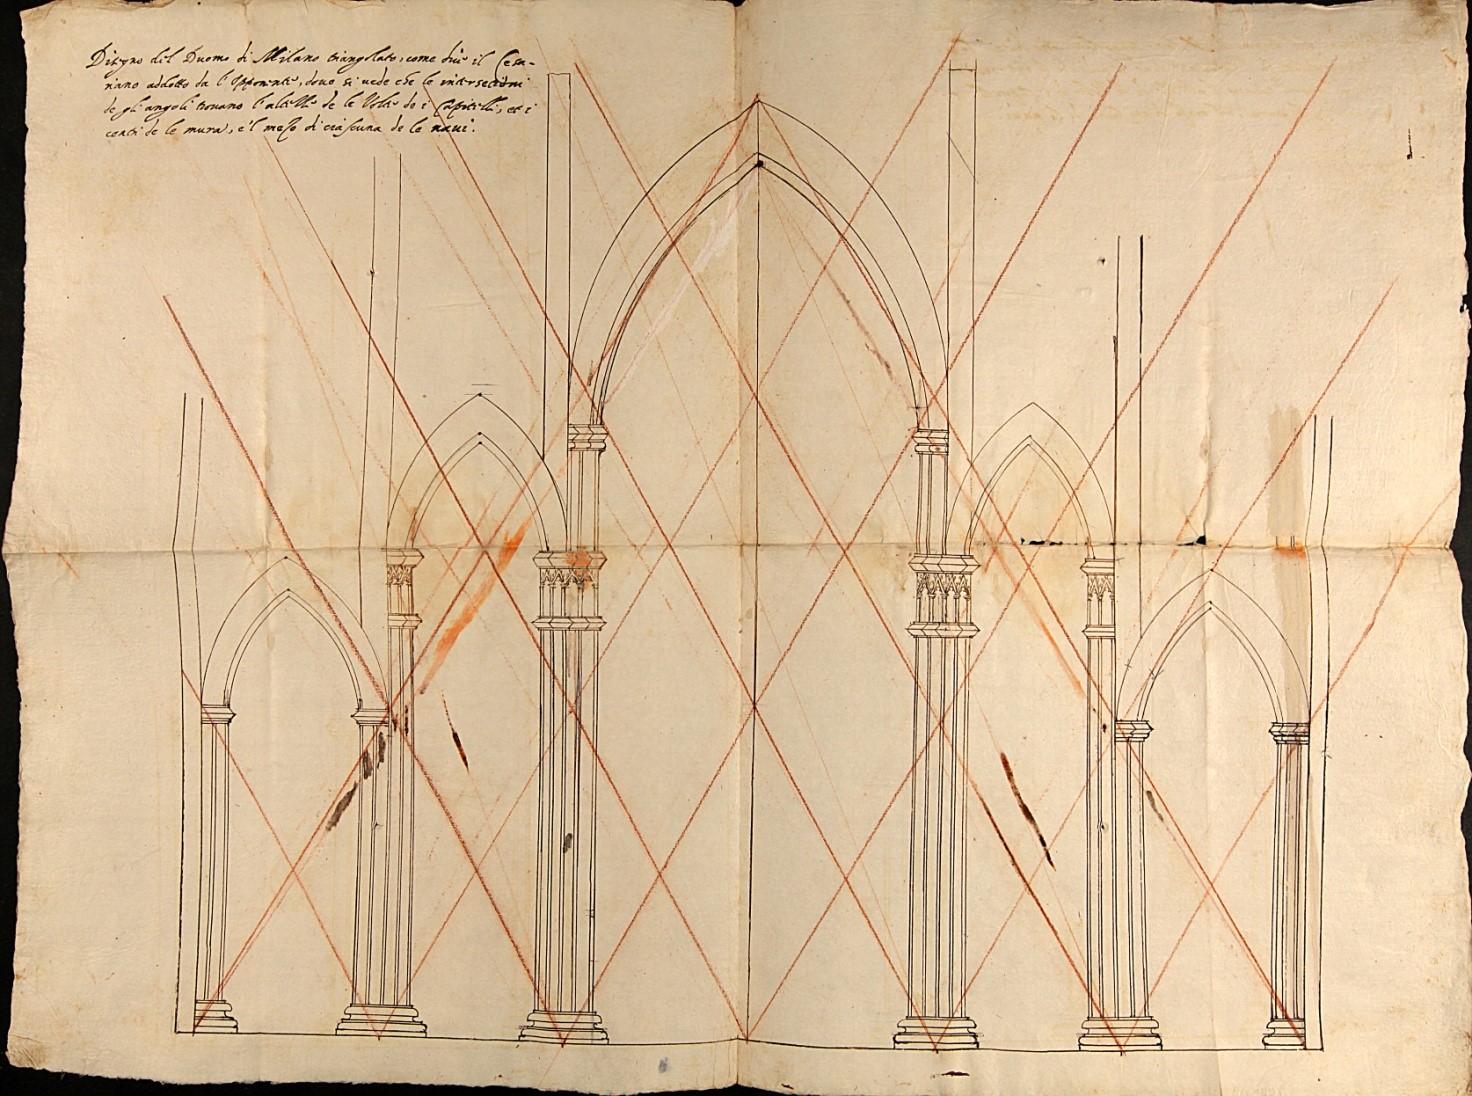 Disegno del Duomo di Milano triangolato, come dice il Cesa-
riano addotto da l'opponente, dove si vede che le intersettioni
de gli angoli trovano l'altezze de le Volte de i Capitelli, et i
centri de le mura, e'l mezo di ciascuna de le navi.